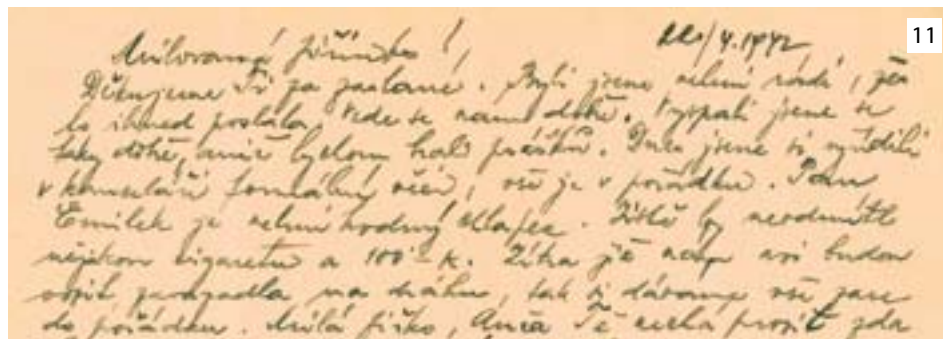 11
/4.1942
Milovaná Jiřinko!
Děkujeme Ti za zaslané. Byli jsme velmi rádi, žes
to ihned poslala. Vede se nám dobře. Vyspali jsme se
taky dobře, aniž bychom brali prášků. Dnes jsme si vyřídili
v kanceláři formální věci, vše je v pořádku. Pan
Emilek je velmi hodný chlapec. Jistě by neodmítl
nějakou cigaretu a 100 K. Zítra již nám asi budou
vozit zavazadla na dráhu, tak si dáváme vše zase
do pořádku. Milá Jiřko, Anča Tě nechá prosit zda